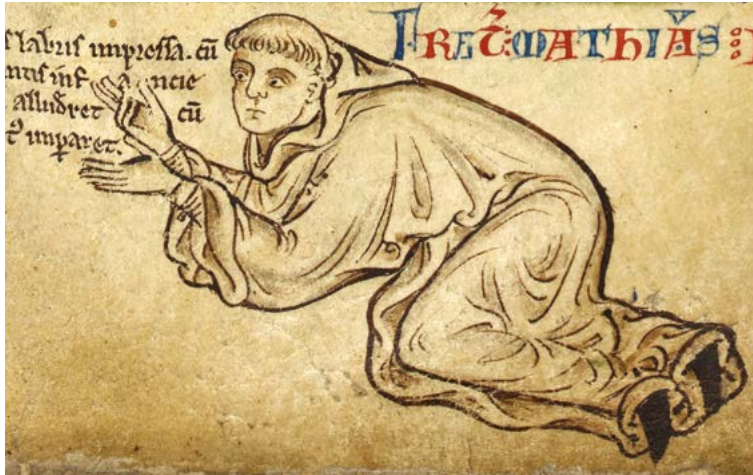 FRAT̃ MATHIAS
s labris impressa. cū
ntis inf
alludret cū
imparet.